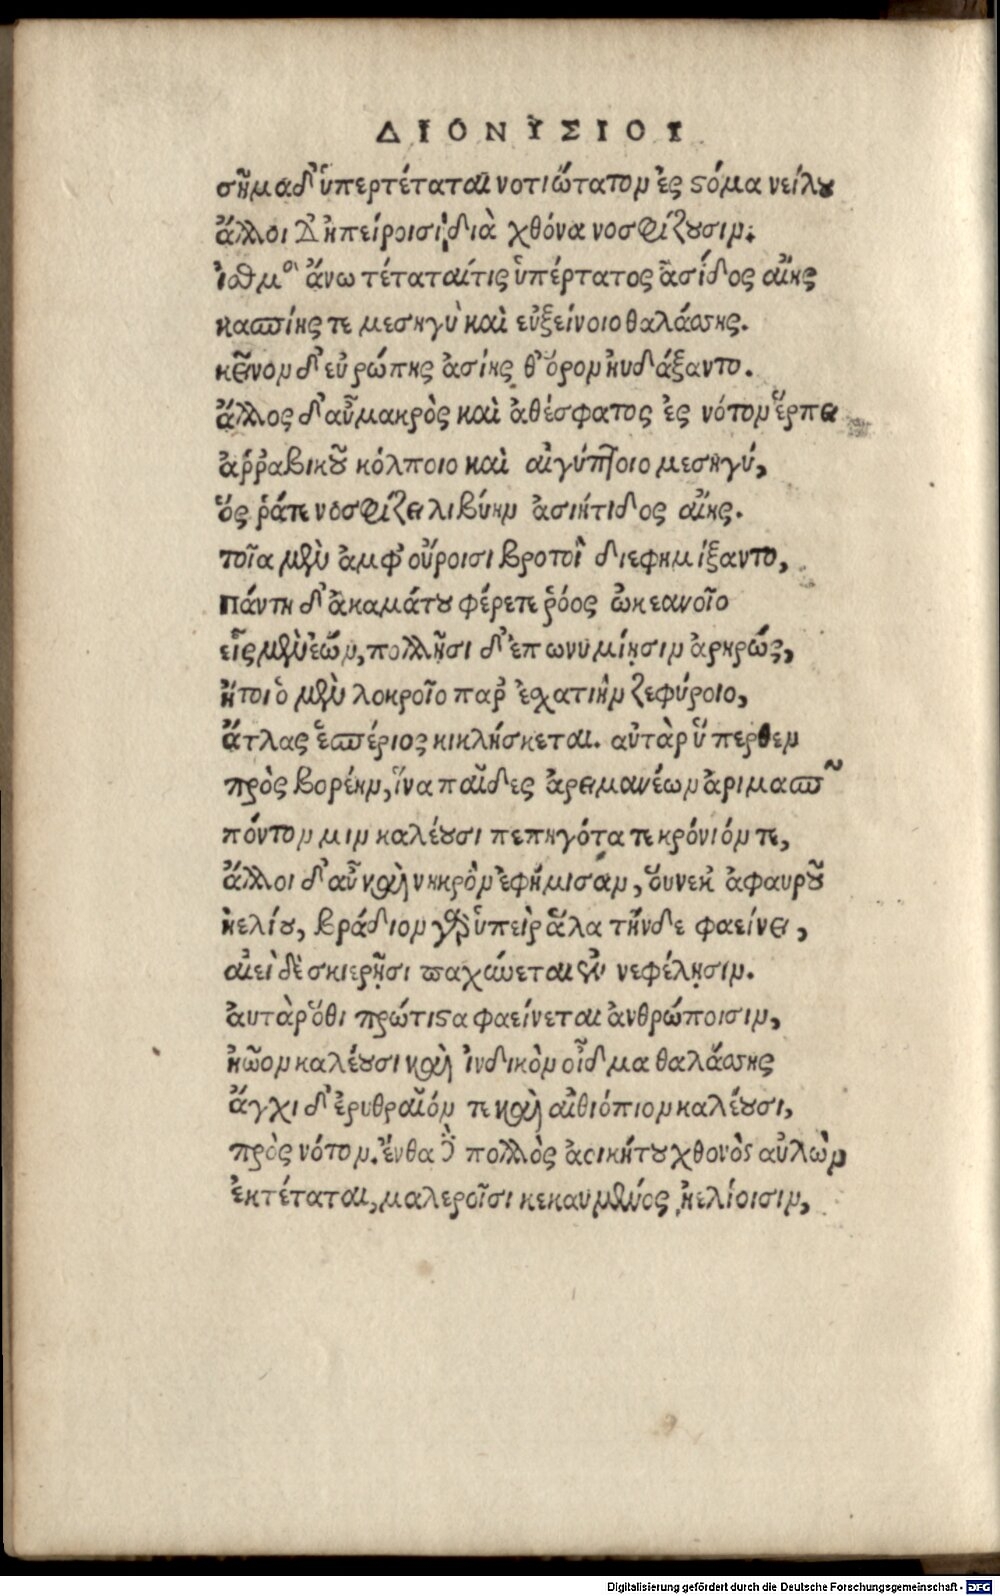 ΔΙΟΝΥΣΙΟΥ
σῆμα δ' ὑπερτέταται νοτιώτατον ἐς στόμα νείλου
ἄλλοι δ' ἠπείροισι διὰ χθόνα νοσφίζουσιν.
ἰσθμὸς ἄνω τέταταί τις ὑπέρτατος ἀσίδος αἴης
κασπίης τε μεσηγὺ καὶ εὐξείνοιο θαλάσσης.
κεῖνον δ' εὐρώπης ἀσίης θ' ὅρον ηὐδάξαντο.
ἄλλος δ' αὖ μακρὸς καὶ ἀθέσφατος ἐς νότον ἕρπει
ἀῤῥαβικοῦ κόλποιο καὶ αἰγύπτοιο μεσηγύ,
ὅς ῥά τε νοσφίζει λιβύην ἀσιήτιδος αἴης.
τοῖα μὲν ἀμφ' οὔροισι βροτοὶ διεφημίξαντο,
πάντη δ' ἀκαμάτου φέρεται ῥόος ὠκεανοῖο
εἷς μὲν ἐών, πολλῇσι δ' ἐπωνυμίῃσιν ἀρηρώς,
ἤτοι ὁ μὲν λοκροῖο παρ' ἐσχατιὴν ζεφύροιο,
ἄτλας ἑσπέριος κικλήσκεται. αὐτὰρ ὕπερθεν
πρὸς βορέην, ἵνα παῖδες ἀρειμανέων ἀριμασπῶν
πόντον μιν καλέουσι πεπηγότα τε κρόνιόν τε,
ἄλλοι δ' αὖ καὶ νηκρὸν ἐφήμισαν, οὕνεκ' ἀφαυροῦ
ἠελίου, βράδιον γὰρ ὑπεὶρ ἅλα τήνδε φαείνει,
αἰεὶ δὲ σκιερῇσι παχύνεται ἐν νεφέλῃσιν.
ἀυτὰρ ὅθι πρώτιστα φαείνεται ἀνθρώποισιν,
ἠῶον καλέουσι καὶ ἰνδικὸν οἶδμα θαλάσσης
ἄγχι δ' ἐρυθραῖόν τε καὶ αἰθιόπιον καλέουσι,
πρὸς νότον. ἔνθα δὲ πολλὸς ἀοικήτου χθονὸς αὐλὼν
ἐκτέταται, μαλεροῖσι κεκαυμένος ἠελίοισιν,
Digitalisierung gefördert durch die Deutsche Forschungsgemeinschaft - DFG